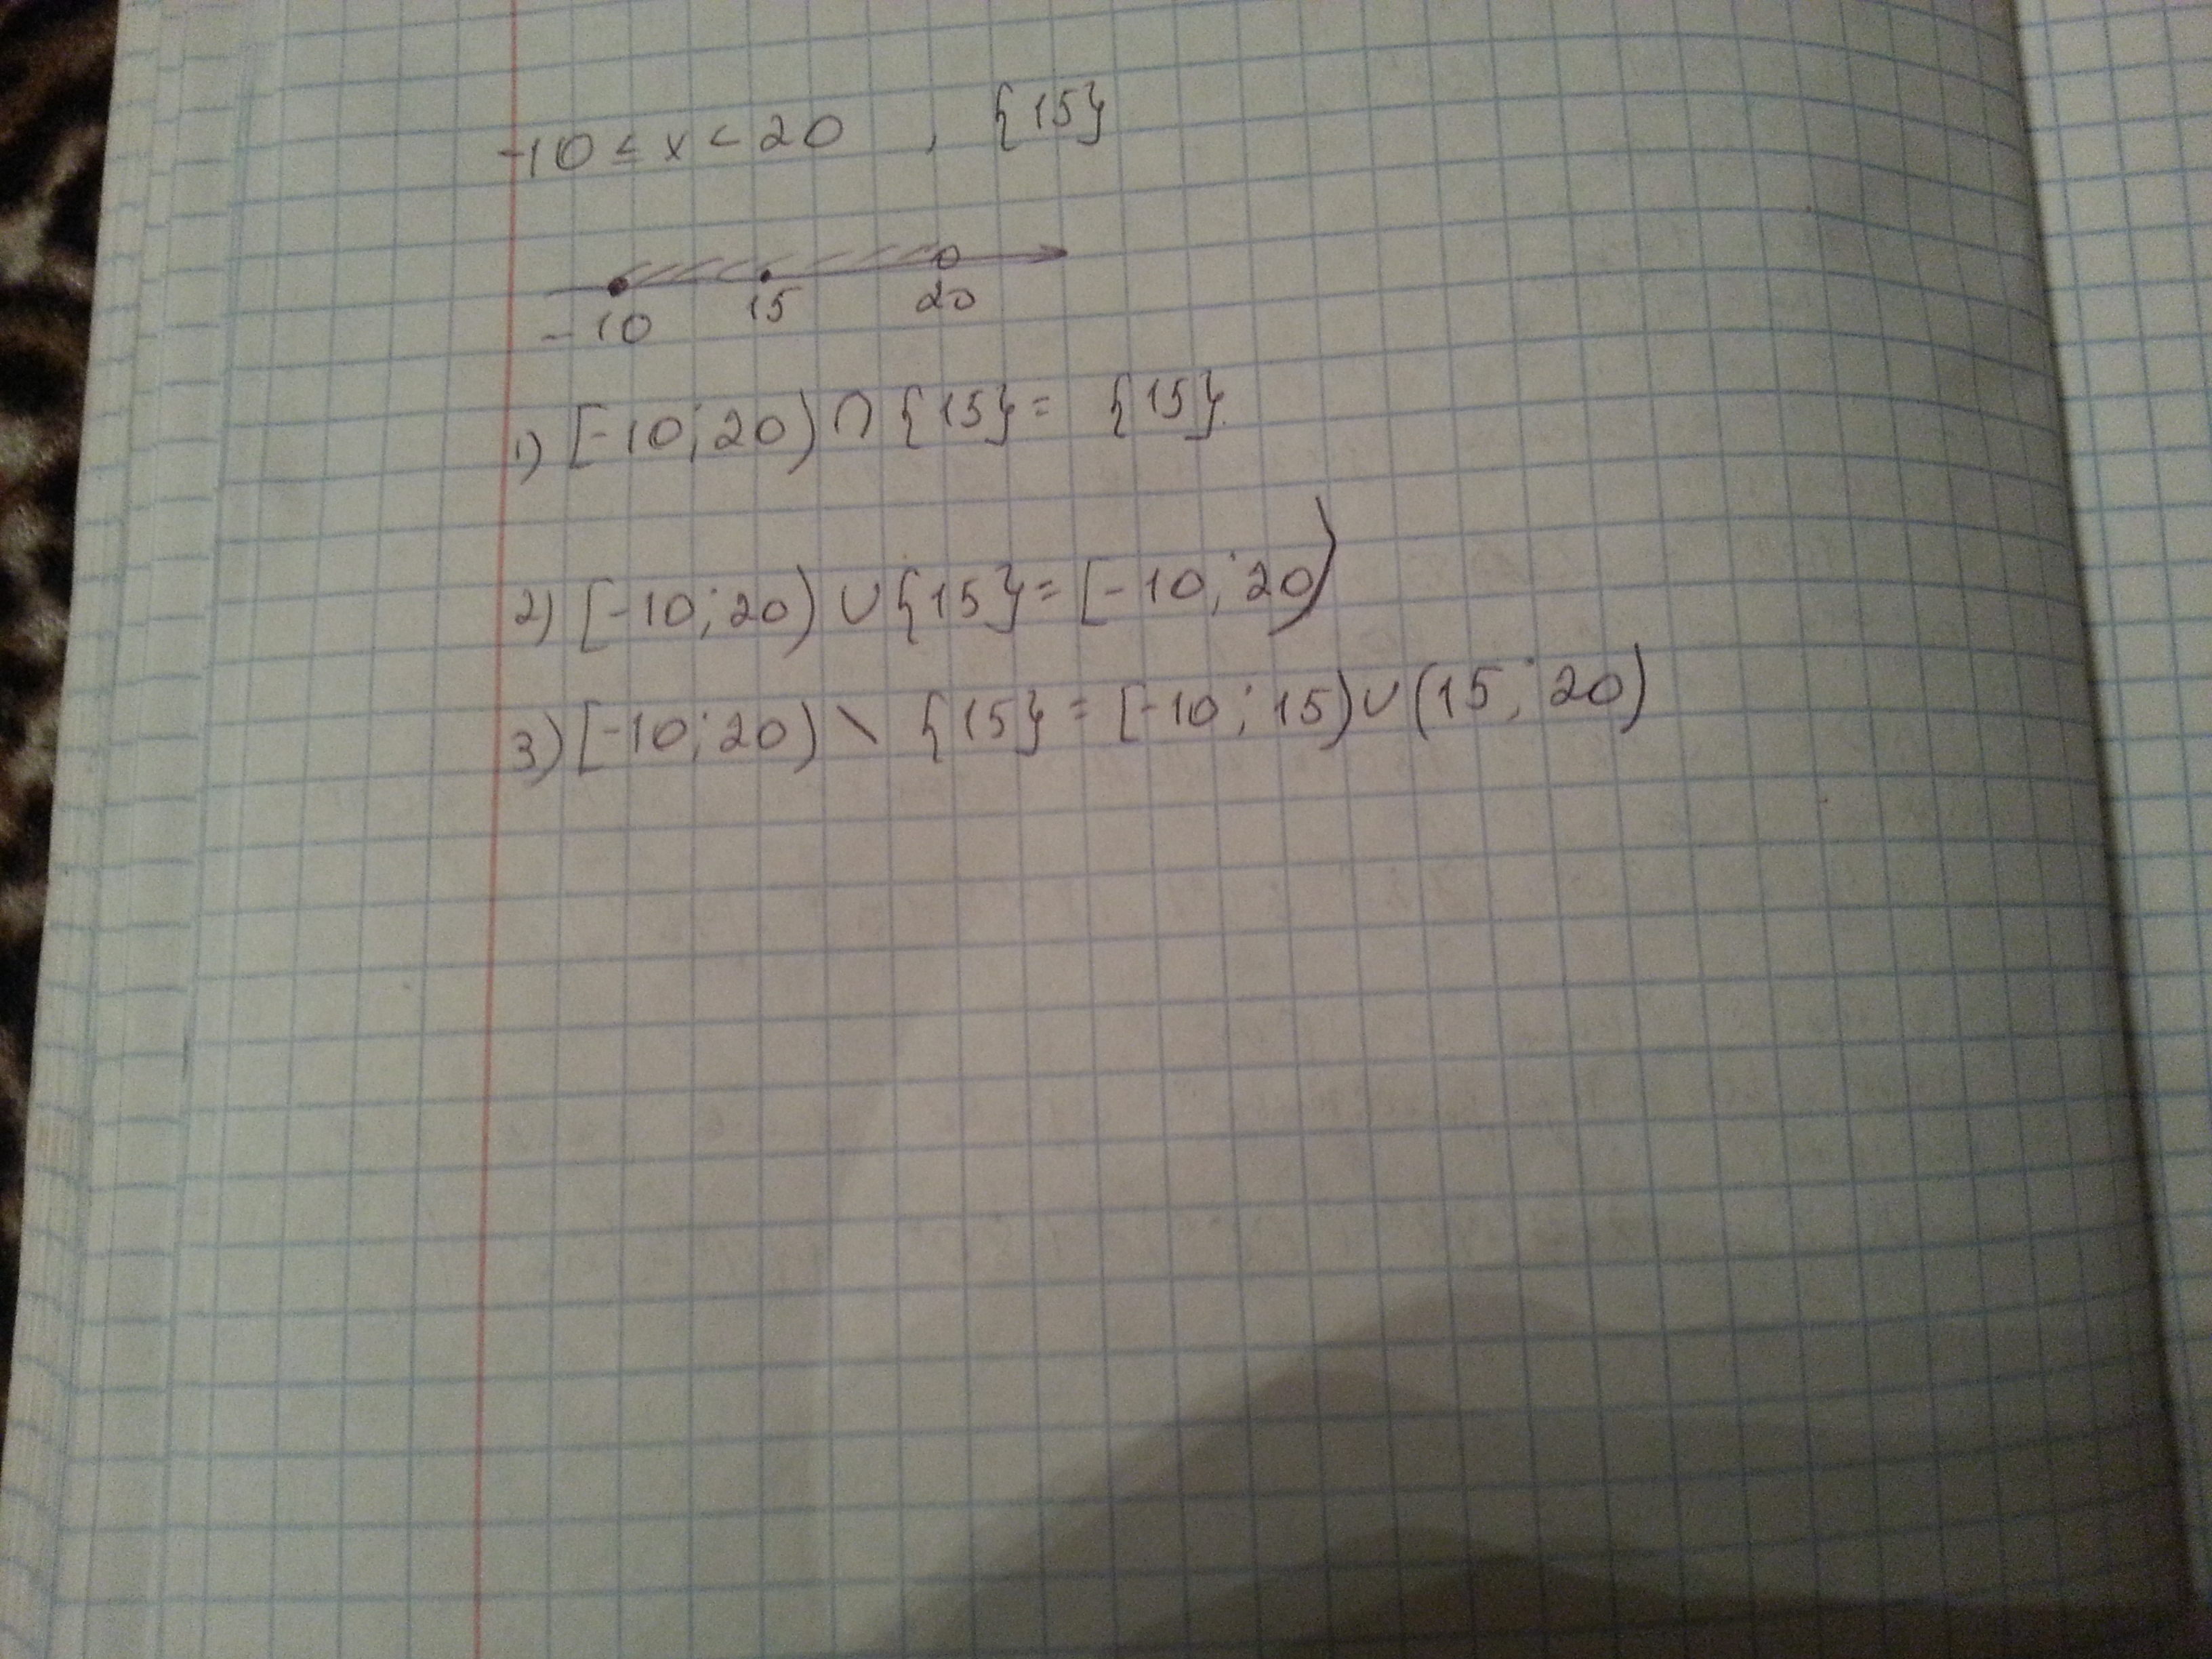 -10 ≤ x < 20 , {15}
-10 15 20
1) [-10; 20) ∩ {15} = {15}.
2) [-10; 20) ∪ {15} = [-10; 20)
3) [-10; 20) \ {15} = [-10; 15) ∪ (15; 20)